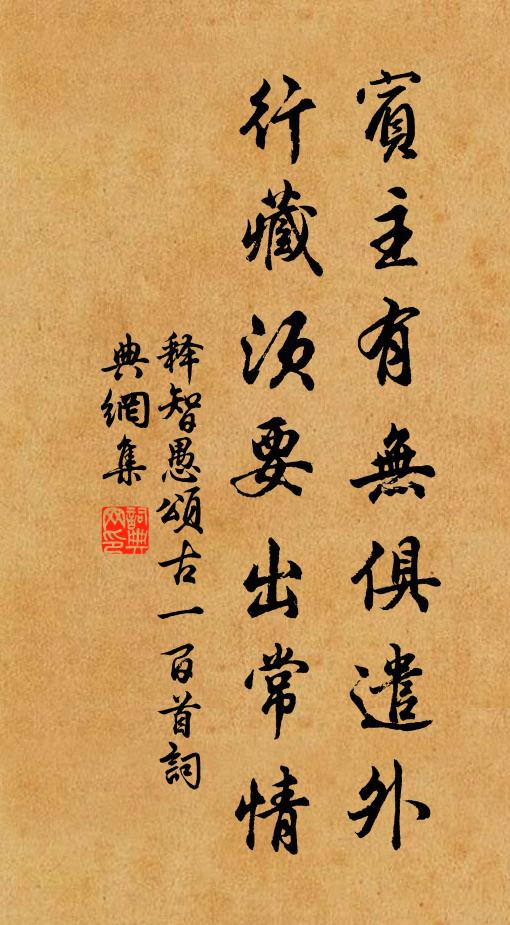 賓主有無俱遣外
行藏須要出常情
释智愚頌古一百首詞
典網集
詞典
網印